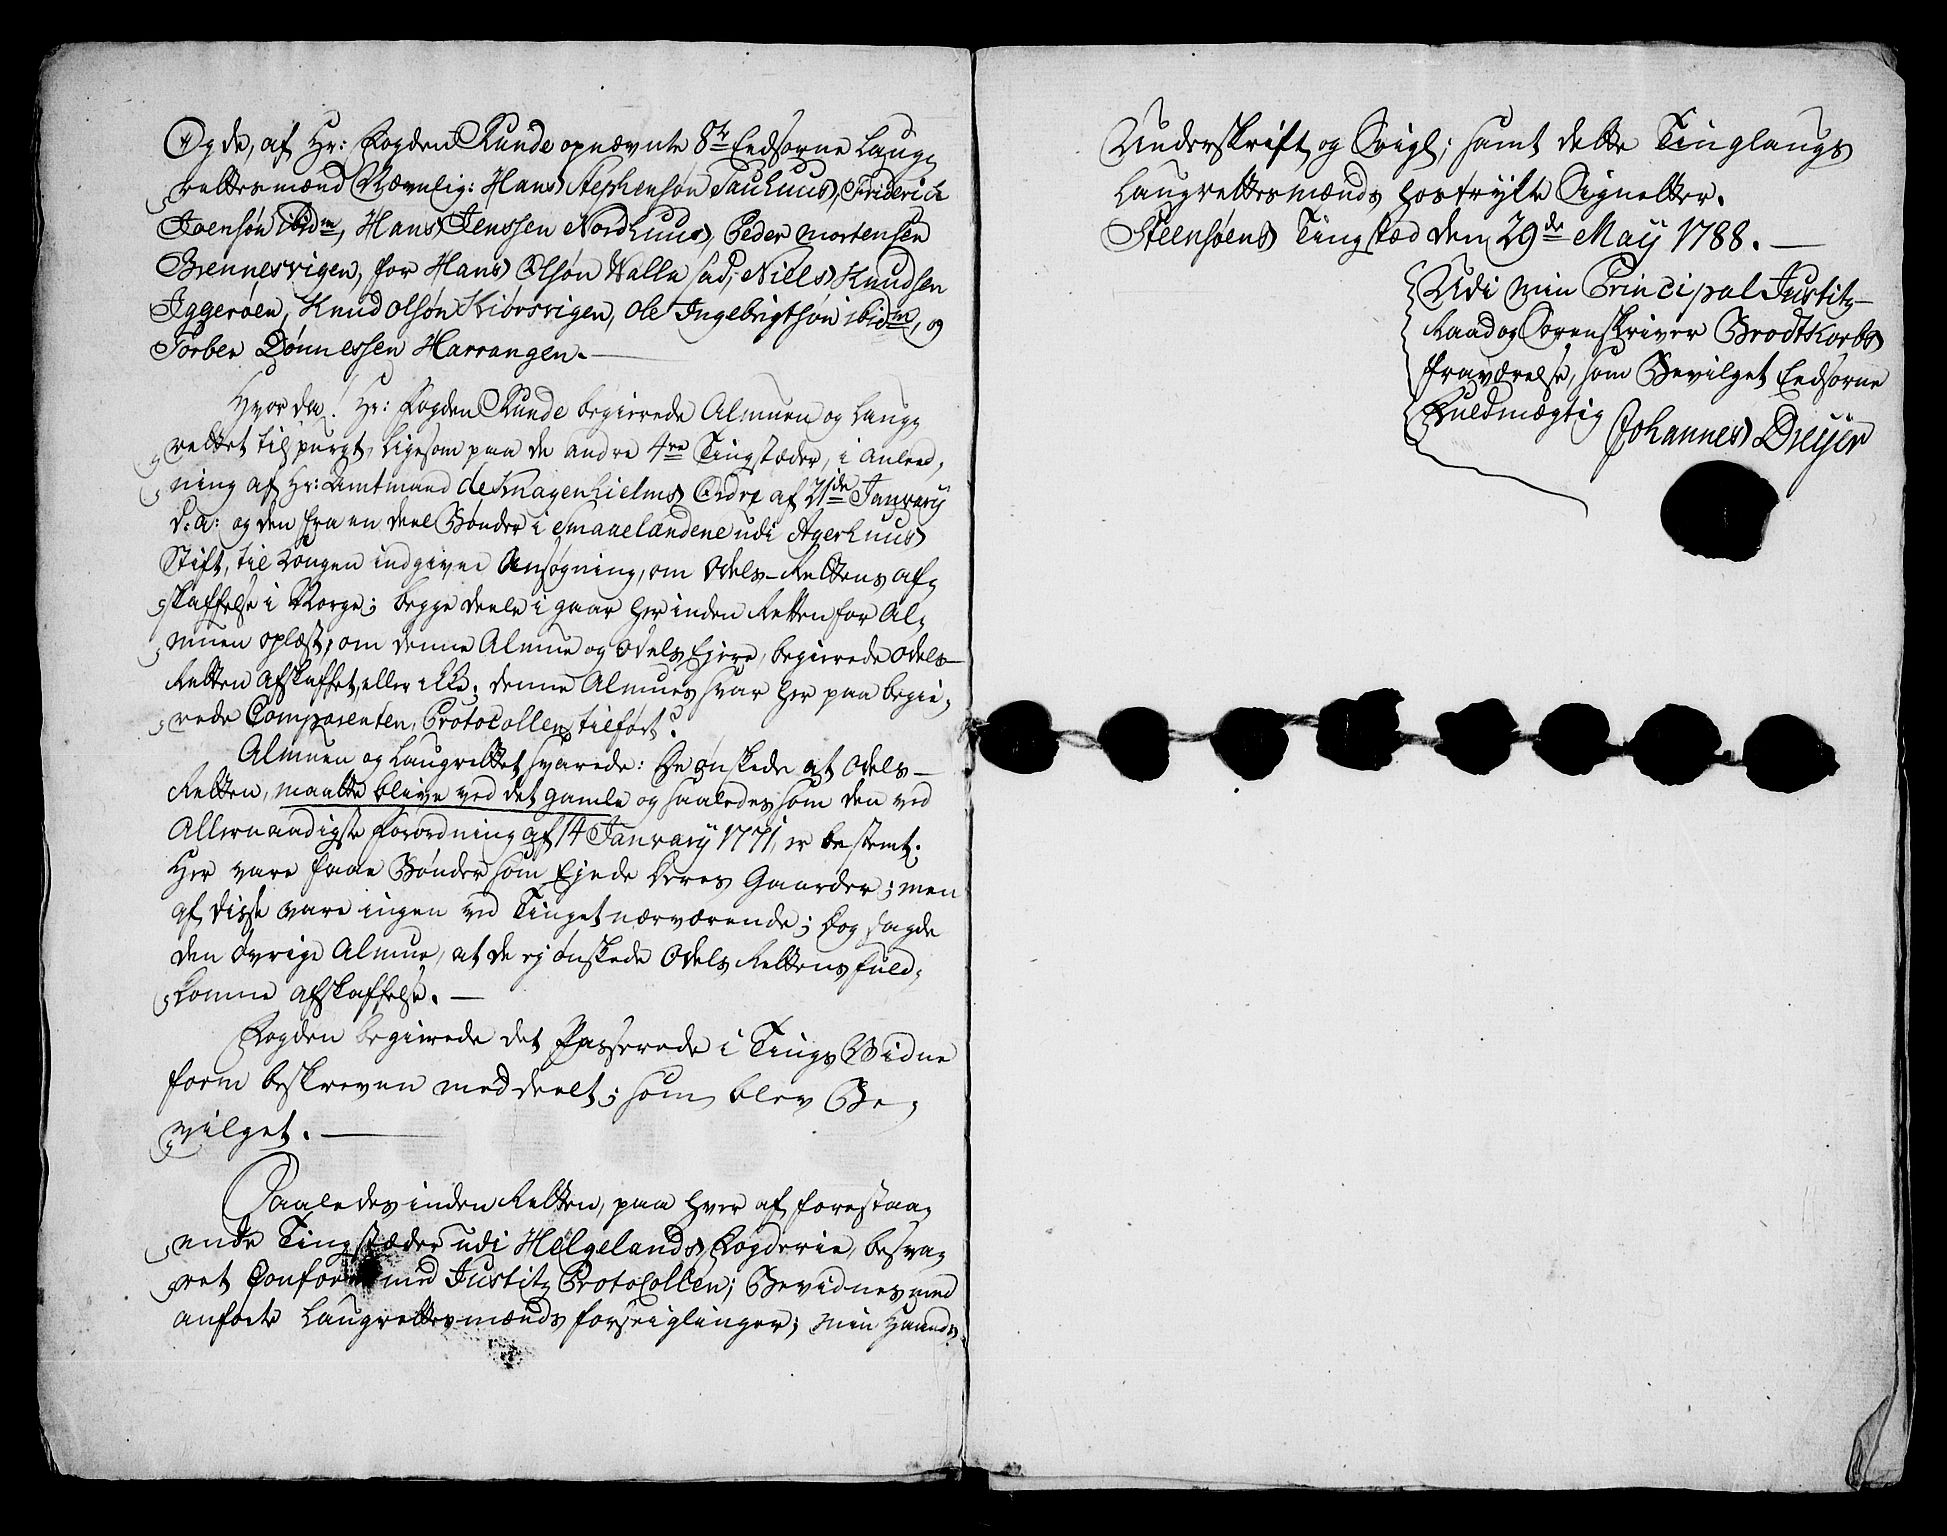 Og de, af Hr: Fogden Runde opnævnte 8te Eedsorne Laug„
„rettesmænd Nævnlig: Hans Stephensøn Tauhuus, Friderich
Joensøn ibidm, Hans Jenssen Nordhuus, Peder Mortensen
Brennesvigen, for Hans Olsøn Walla sad, Niels Knudsen
Iggerøen, Knud Olsøn Kiørsvigen, Ole Ingebrigtsøn ibidm, og
Torber Dønnessen Harrangen. —
Hvor da! Hr: Fogden Runde begierede Almuen og Laug„
„rettet tilspurgt, ligesom paa de andre 4re Tingstæder, i anleed„
„ning af Hr: Amtmand de Knagenhielms Ordre af 21de Janvarij
d: a: og den fra en deel Bønder i Smaaelandene udi Agerhuus
Stift, til Kongen indgivne Ansøgning, om Odels-Rettens af„
„skaffelse i Norge; begge deele i gaar her inden Retten for Al„
„muen oplæst; om denne Almue og Odels Ejere, begierede Odels-
Retten afskaffet, eller ikke; denne Almues svar her paa begie„
„rede Comparenten, Protocollen tilført?
Almuen og Laugrettet svarede: De ønskede at Odels-
Retten, maatte blive ved det gamle og saaledes som den ved
Allernaadigste Forordning af 14 Janvarij 1771, er bestemt;
Her vare faae Bønder som Ejede deres Gaarder; men
af disse vare ingen ved Tinget nærværende; dog sagde
den øvrige Almue, at de ej ønskede Odels Rettens fuld„
„komne afskaffelse. —
Fogden begierede det Passerede i Tings Widne
form beskreven meddeelt; som blev Be„
„vilget. —
Saaledes inden Retten, paa hver af forestaa„
„ende Tingstæder udi Helgelands Fogderie, besva„
„ret Conform med Justitz Protocollen; Bevidnes med
anførte Laugrettesmænds forseiglinger; min Haands
Underskrift og Seigl; samt dette Tinglaugs
Laugrettesmænds hostrykte Signetter.
Steensøens Tingstæd den 29de Maij 1788. —
Udi min Principal Justitz-
Raad og Sorenskriver Brodtkorbs
fraværelse, som Bevilget Eedsorne
Fuldmægtig Johannes Dreijer